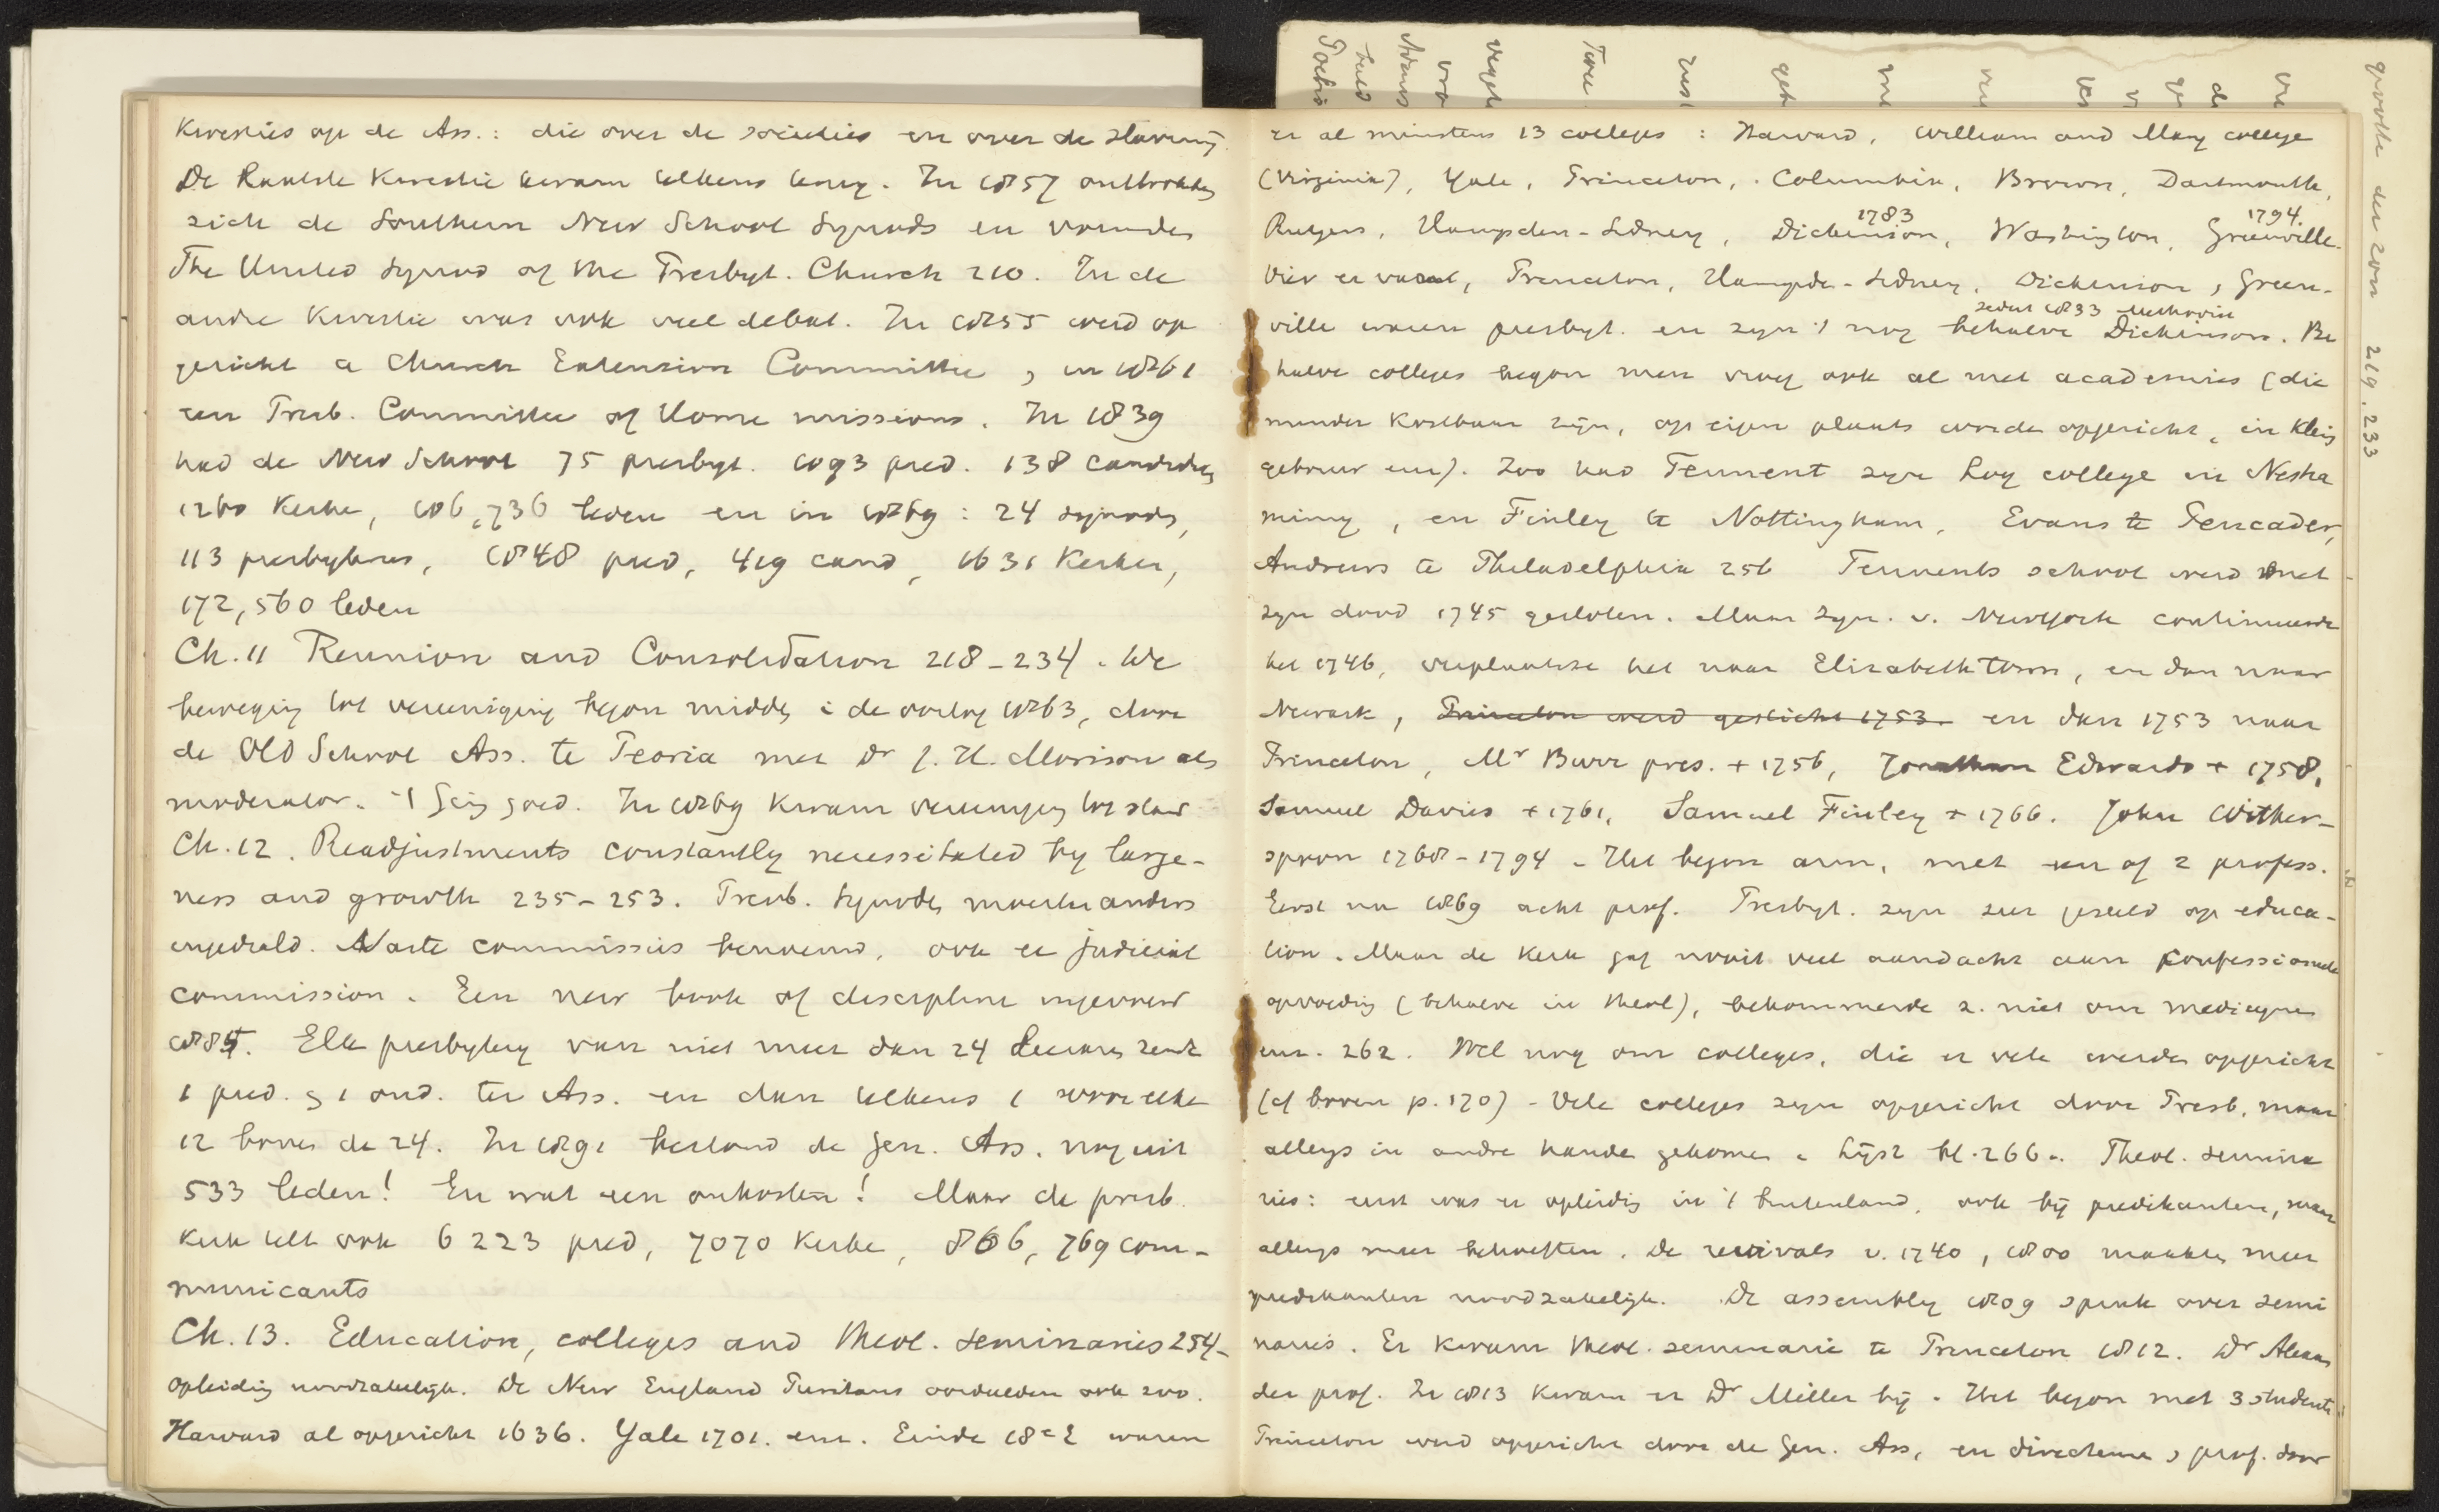 Kwesties op de Ass.: die over de societies en over de slavernij.
De laatste kwestie kwam telkens terug. In 1857 onttrokken
zich de Southern New School Synods en vormden
The United Synod of the Presbyt. Church 210. In de
andre kwestie was ook veel debat. In 1855 werd op
gericht a Church Extension Committee, en 1861
een Presb. Committee of Home missions. In 1839
had de New School 75 presbyt. 1093 pred. 138 candidaten
1260 kerken, 106,736 leden en in 1869: 24 synods,
113 presbyteries, 1848 pred, 419 cand, 1631 Kerken,
172,560 leden
Ch. 11 Reunion and Consolidation 218-234. De
beweging tot vereeniging begon midden i de oorlog 1863, door
de Old School Ass. te Peoria met Dr J. H. Morrison als
moderator. 't ging goed. In 1869 kwam vereeniging tot stand
Ch. 12. Readjustments constantly necessitated by large-
ness and growth 235-253. Presb. Synoden moesten anders
ingedeeld. Vaste commissies benoemd, ook ee judicial
commission. Een new book of discipline ingevoerd
1884. Elk presbytery van niet meer dan 24 Leeraars zendt
1 pred. & 1 oud. ter Ass. en dan telkens 1 voor elke
12 boven de 24. In 1891 bestond de Gen. Ass. nog uit
533 leden! En wat een onkosten! Maar de presb.
Kerk telt ook 6223 pred, 7070 kerke, 806,769 com-
municants
Ch. 13. Education, colleges and theol. seminaries 254-
Opleiding noodzakelijk. De New England Puritans oordeelden ook zoo.
Harvard al opgericht 1636. Yale 1701. enz. Einde 18e E waren
er al minstens 13 colleges: Harvard, William and Mary college
(Virginia), Yale, Princeton, Columbia, Brown, Dartmouth,
1783 1794.
Rutgers, Hampden-Sidney, Dickinson, Washington, Greenville.
Vier er van, Princeton, Hampde-Sidney, Dickinson, Green-
sedert 1833 Methodis
ville waren presbyt. en zijn 't nog behalve Dickinson. Be
halve colleges begon men vroeg ook al met academies (die
minder kostbaar zijn, op eigen plaats worden opgericht, in klein
gebouw enz). Zoo had Tennent zijn Log college in Nesha
miny, en Finley te Nottingham, Evans te Pencader,
Andrews te Philadelphia 256 Tennents school werd met
zijn dood 1745 gesloten. Maar Syn. v. New York continueerde
het 1746, verplaatste het naar Elizabethtown, en dan naar
Newark, Princeton werd gesticht 1753. en dan 1753 naar
Princeton, Mr Burr pres. + 1756, Jonathan Edwards + 1758,
Samuel Davies + 1761, Samuel Finley + 1766. John Wither-
spoon 1768-1794. Het begon arm, met een of 2 profess.
Eerst na 1869 acht prof. Presbyt. zijn zeer gesteld op educa-
tion. Maar de kerk gaf nooit veel aandacht aan professioneele
opvoeding (behalve in theol), bekommerde z. niet om medicijnen
enz. 262. Wel nog om colleges, die er vele werden opgericht
(cf boven p. 170). Vele colleges zijn opgericht door Presb. maar
allengs in andre handen gekomen. Lijst bl. 266. Theol. semina
ries: eerst was er opleiding in 't buitenland, ook bij predikanten, maar
allengs meer behoeften. De revivals v. 1740, 1800 maakten meer
predikanten noodzakelijk. De assembly 1809 sprak over semi
naries. Er kwam theol. seminarie te Princeton 1812. Dr Alexan
der prof. In 1813 kwam er Dr Miller bij. Het begon met 3 studenten
Princeton werd opgericht door de Gen. Ass, en directeuren & prof. door
grootte der zon 219. 233